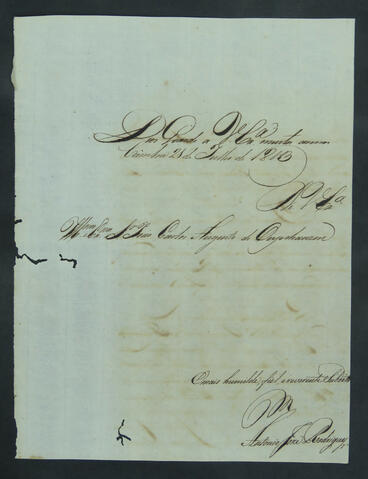 Ds Guarde a V. Exa muitos annos
Coimbra 23 de Julho de 1813
De V. Exa
Illmo e Exmo Snr João Carlos Augusto de Oyenhausen
O mais humilde, fiel, e reverente Subdito
Antonio José Rodrigues